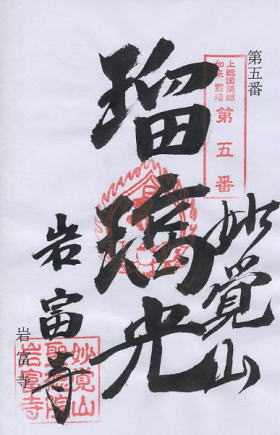 第五番
上総国薬師
如来霊場
第五番
妙覚山
瑠璃光
岩富寺
岩富寺
妙覚山
聖徳院
岩富寺